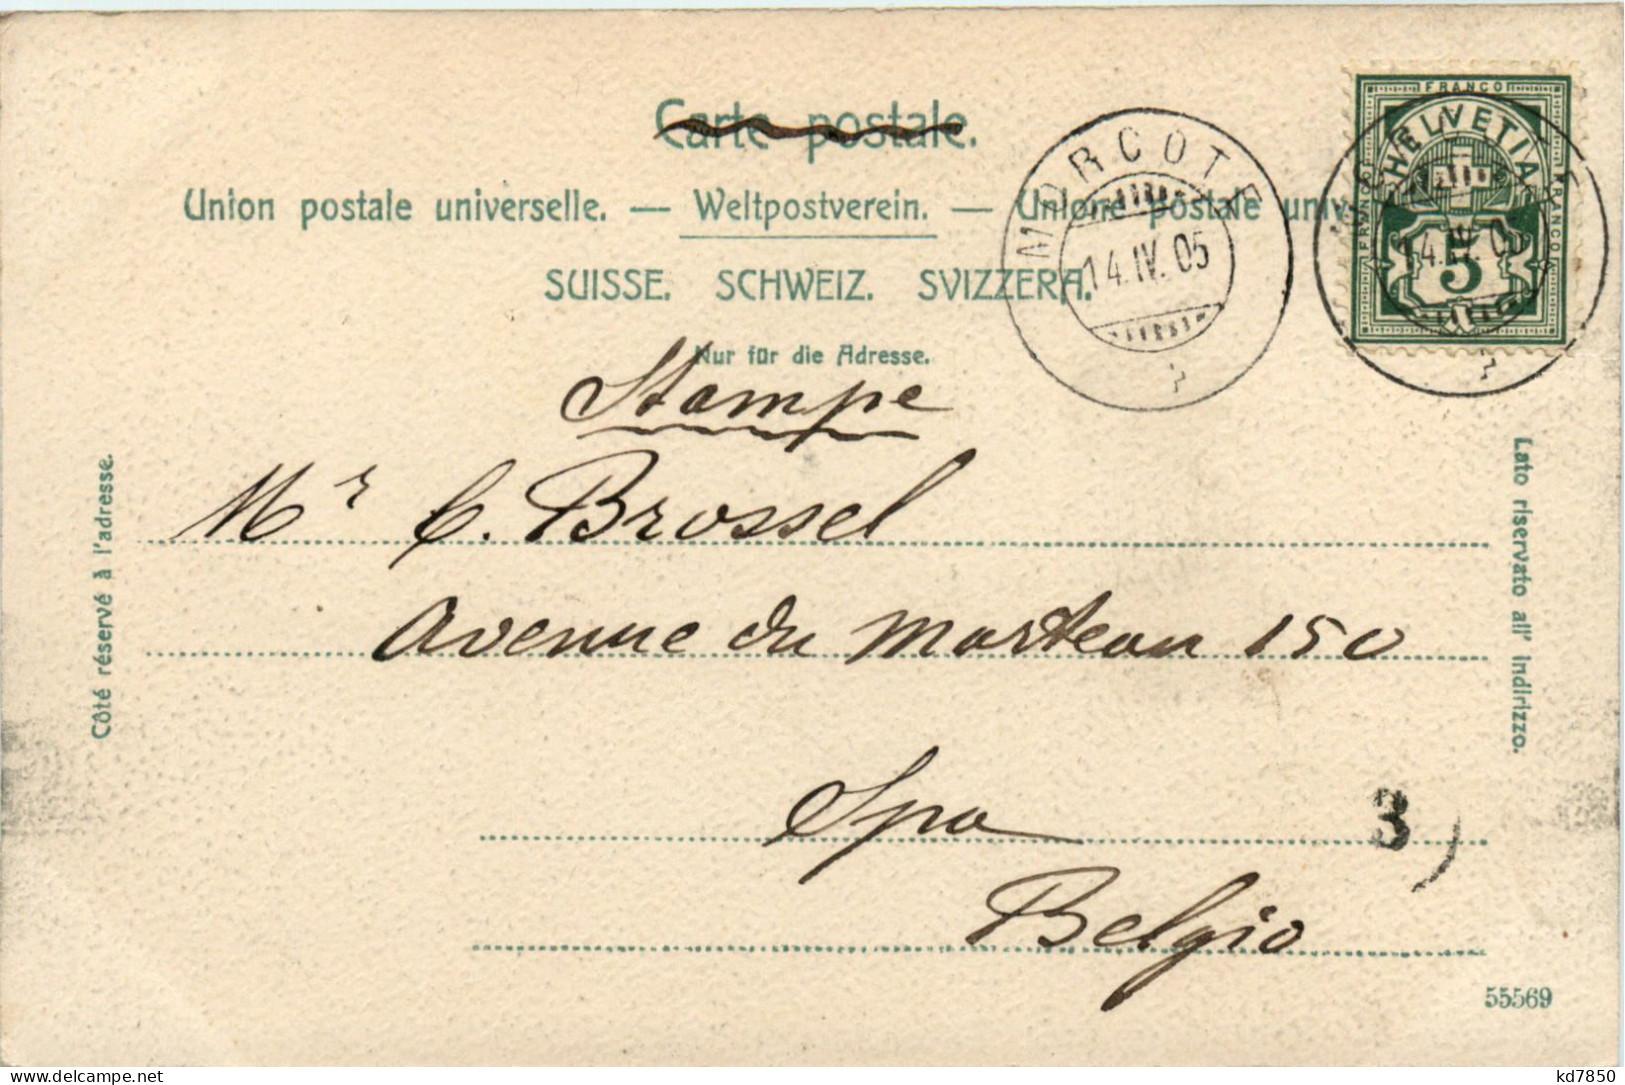 Carte postale.
Union postale universelle. — Weltpostverein. — Unione postale univ
SUISSE. SCHWEIZ. SVIZZERA.
Nur für die Adresse.
MORCOTE
14.IV.05
FRANCO
HELVETIA
FRANCO
FRANCO
5
14.IV.05
Stampe
Mr C. Brossel
Avenue du Marteau 150
Spa
Belgio
3
Côté réservé à l'adresse.
Lato riservato all' indirizzo.
55569
kd7850